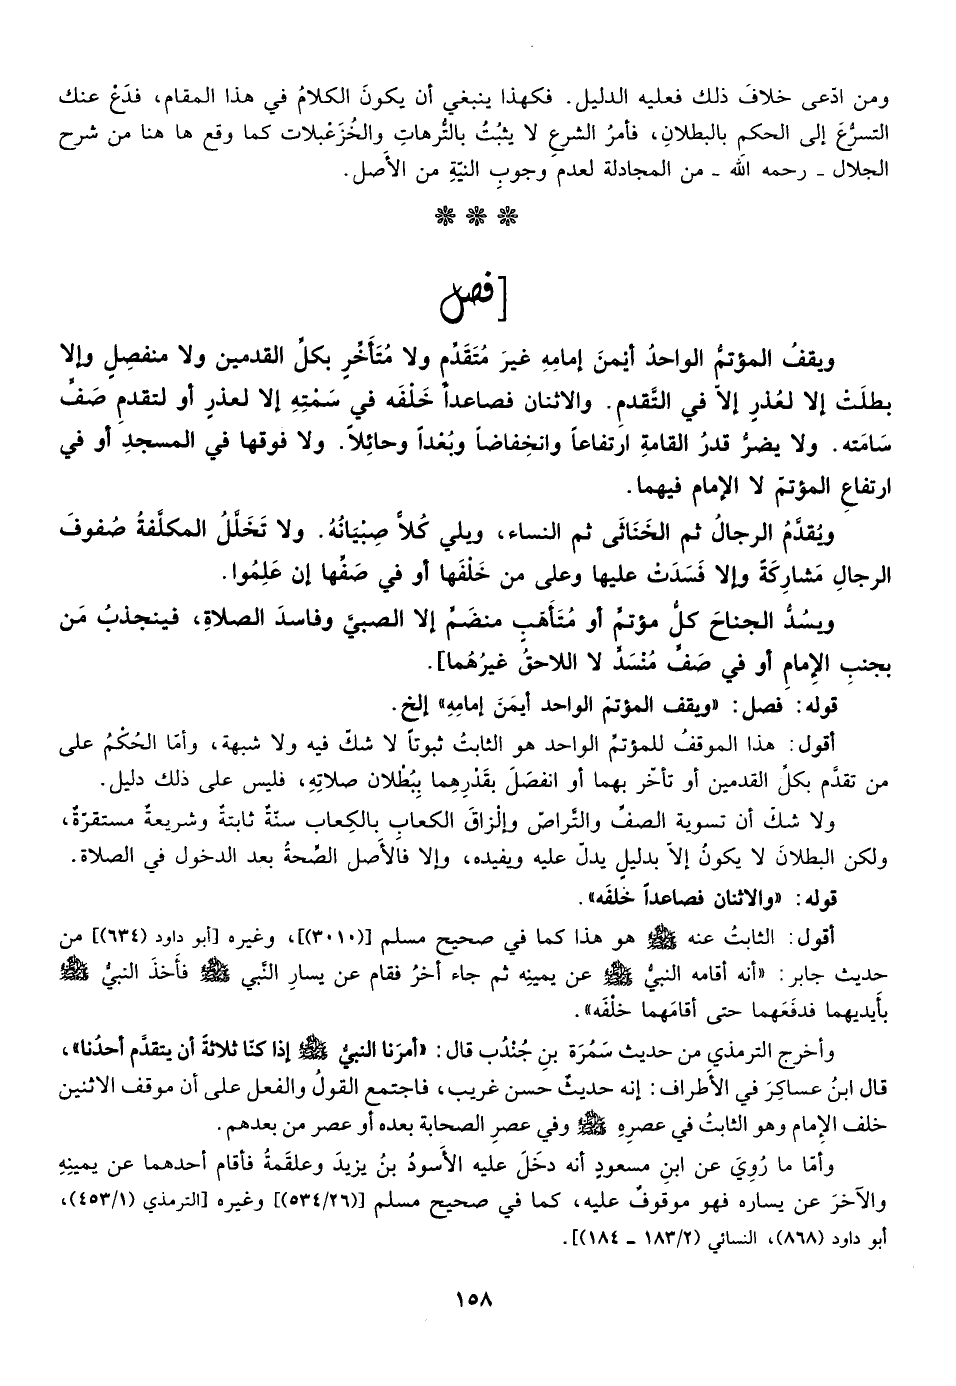 ومن ادّعى خلافَ ذلك فعليه الدليل. فكهذا ينبغي أن يكونَ الكلامُ في هذا المقام، فدَعْ عنك
التسرُّعَ إلى الحكمِ بالبطلانِ، فأمرُ الشرعِ لا يثبُتُ بالتُّرهاتِ والخُزَعْبلات كما وقع ها هنا من شرح
الجلال ـ رحمه الله ـ من المجادلة لعدم وجوبِ النيّةِ من الأَصل.
❋ ❋ ❋
[فصل
ويقفُ المؤتمُّ الواحدُ أيمنَ إمامِهِ غيرَ مُتَقَدِّمٍ ولا مُتَأَخِّرٍ بكلِّ القدمين ولا منفصِلٍ وإلا
بطلَتْ إلا لعُذرٍ إلاّ في التَّقدمِ. والاثنان فصاعداً خَلْفَه في سَمْتِهِ إلا لعذرٍ أو لتقدمِ صَفٍّ
سَامَته. ولا يضرُّ قدرُ القامةِ ارتفاعاً وانخِفاضاً وبُعْداً وحائِلاً. ولا فوقها في المسجدِ أو في
ارتفاعِ المؤتمّ لا الإمام فيهما.
ويُقدَّمُ الرجالُ ثم الخَنَاثَى ثم النساء، ويلي كُلاًّ صِبْيَانُهُ. ولا تَخَلَّلُ المكلَّفةُ صُفوفَ
الرجالِ مَشاركَةً وإلا فَسَدَتْ عليها وعلى من خَلْفَها أو في صَفِّها إن عَلِمُوا.
ويسُدُّ الجناحَ كلُّ مؤتمٍّ أو مُتَأَهّبٍ منضَمٍّ إلا الصبيَّ وفاسدَ الصلاةِ، فينجذبُ مَن
بجنبِ الإِمامِ أو في صَفٍّ مُنْسَدٍّ لا اللاحقُ غيرُهُما].
قوله: فصل: «ويقف المؤتمّ الواحد أيمَنَ إمامِهِ» إلخ.
أقول: هذا الموقفُ للمؤتمِّ الواحد هو الثابتُ ثبوتاً لا شكّ فيه ولا شبهة، وأمّا الحُكْمُ على
من تقدَّم بكلِّ القدمين أو تأخّر بهما أو انفصَلَ بقَدْرِهما بِبُطْلان صلاتِهِ، فليس على ذلك دليل.
ولا شكّ أن تسوية الصفِّ والتَّراصّ وإلْزاقَ الكعابِ بالكِعاب سنّةٌ ثابتةٌ وشريعةٌ مستقرّةٌ،
ولكن البطلانَ لا يكونُ إلاّ بدليلٍ يدلّ عليه ويفيده، وإلا فالأَصل الصِّحةُ بعد الدخول في الصلاة.
قوله: «والاثنان فصاعداً خلفَه».
أقول: الثابتُ عنه ﷺ هو هذا كما في صحيح مسلم [(٣٠١٠)]، وغيره [أبو داود (٦٣٤)] من
حديث جابر: «أنه أقامه النبيُّ ﷺ عن يمينِه ثم جاء أخرُ فقام عن يسارِ النَّبي ﷺ فأخذَ النبيُّ ﷺ
بأَيديهما فدفَعَهما حتى أقامَهما خلْفَه».
وأخرج الترمذي من حديث سَمُرَة بنِ جُنْدُب قال: «أمرَنا النبيُّ ﷺ إذا كنّا ثلاثةً أن يتقدَّم أحدُنا»،
قال ابنُ عساكِرَ في الأَطراف: إنه حديثٌ حسن غريب، فاجتمع القولُ والفعل على أن موقف الاثنين
خلف الإِمام وهو الثابتُ في عصرِهِ ﷺ وفي عصرِ الصحابة بعده أو عصر من بعدهم.
وأمّا ما رُوِيَ عن ابنِ مسعودٍ أنه دخَلَ عليه الأَسودُ بنُ يزيدَ وعلقَمةُ فأقام أحدهما عن يمينِهِ
والآخرَ عن يساره فهو موقوفٌ عليه، كما في صحيح مسلم [(٥٣٤/٢٦)] وغيره [الترمذي (٤٥٣/١)،
أبو داود (٨٦٨)، النسائي (١٨٣/٢ ـ ١٨٤)].
١٥٨